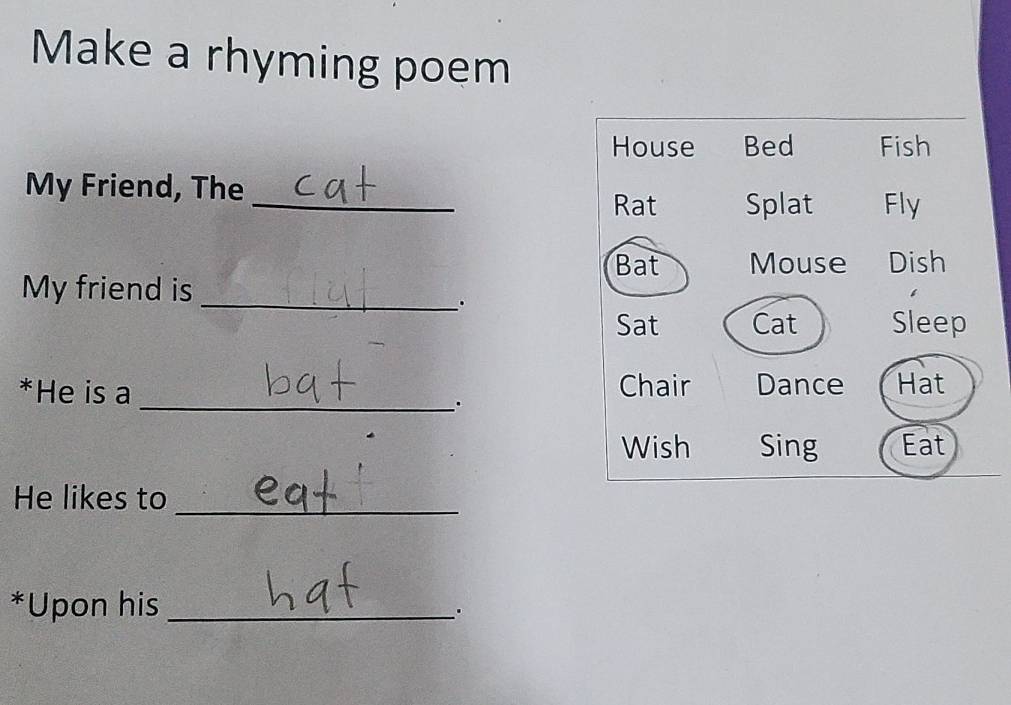 Make a rhyming poem
House Bed Fish
My Friend, The cat
Rat Splat Fly
Bat Mouse Dish
My friend is flat.
Sat Cat Sleep
*He is a bat.
Chair Dance Hat
Wish Sing Eat
He likes to eat
*Upon his hat.